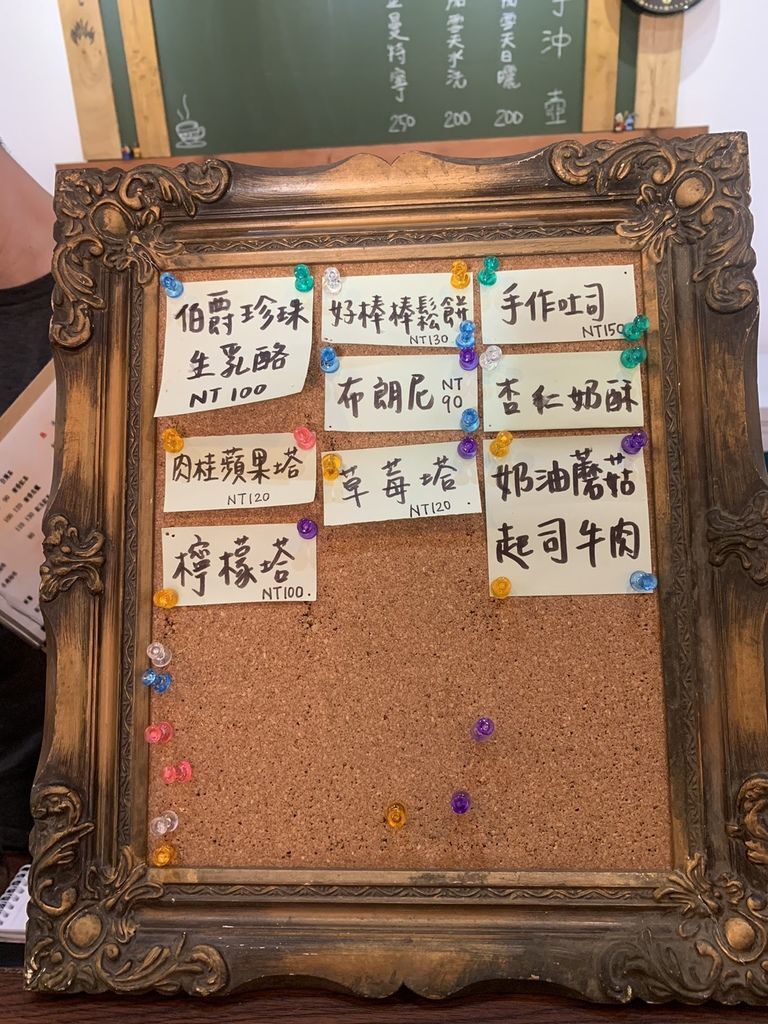 手沖壺
200
200
曼特寧 250
伯爵珍珠
生乳酪
NT 100
好棒棒鬆餅
NT130
手作吐司
NT150
布朗尼 NT 90
杏仁奶酥
肉桂蘋果塔
NT120
草莓塔
NT120
奶油蘑菇
起司牛肉
檸檬塔
NT100